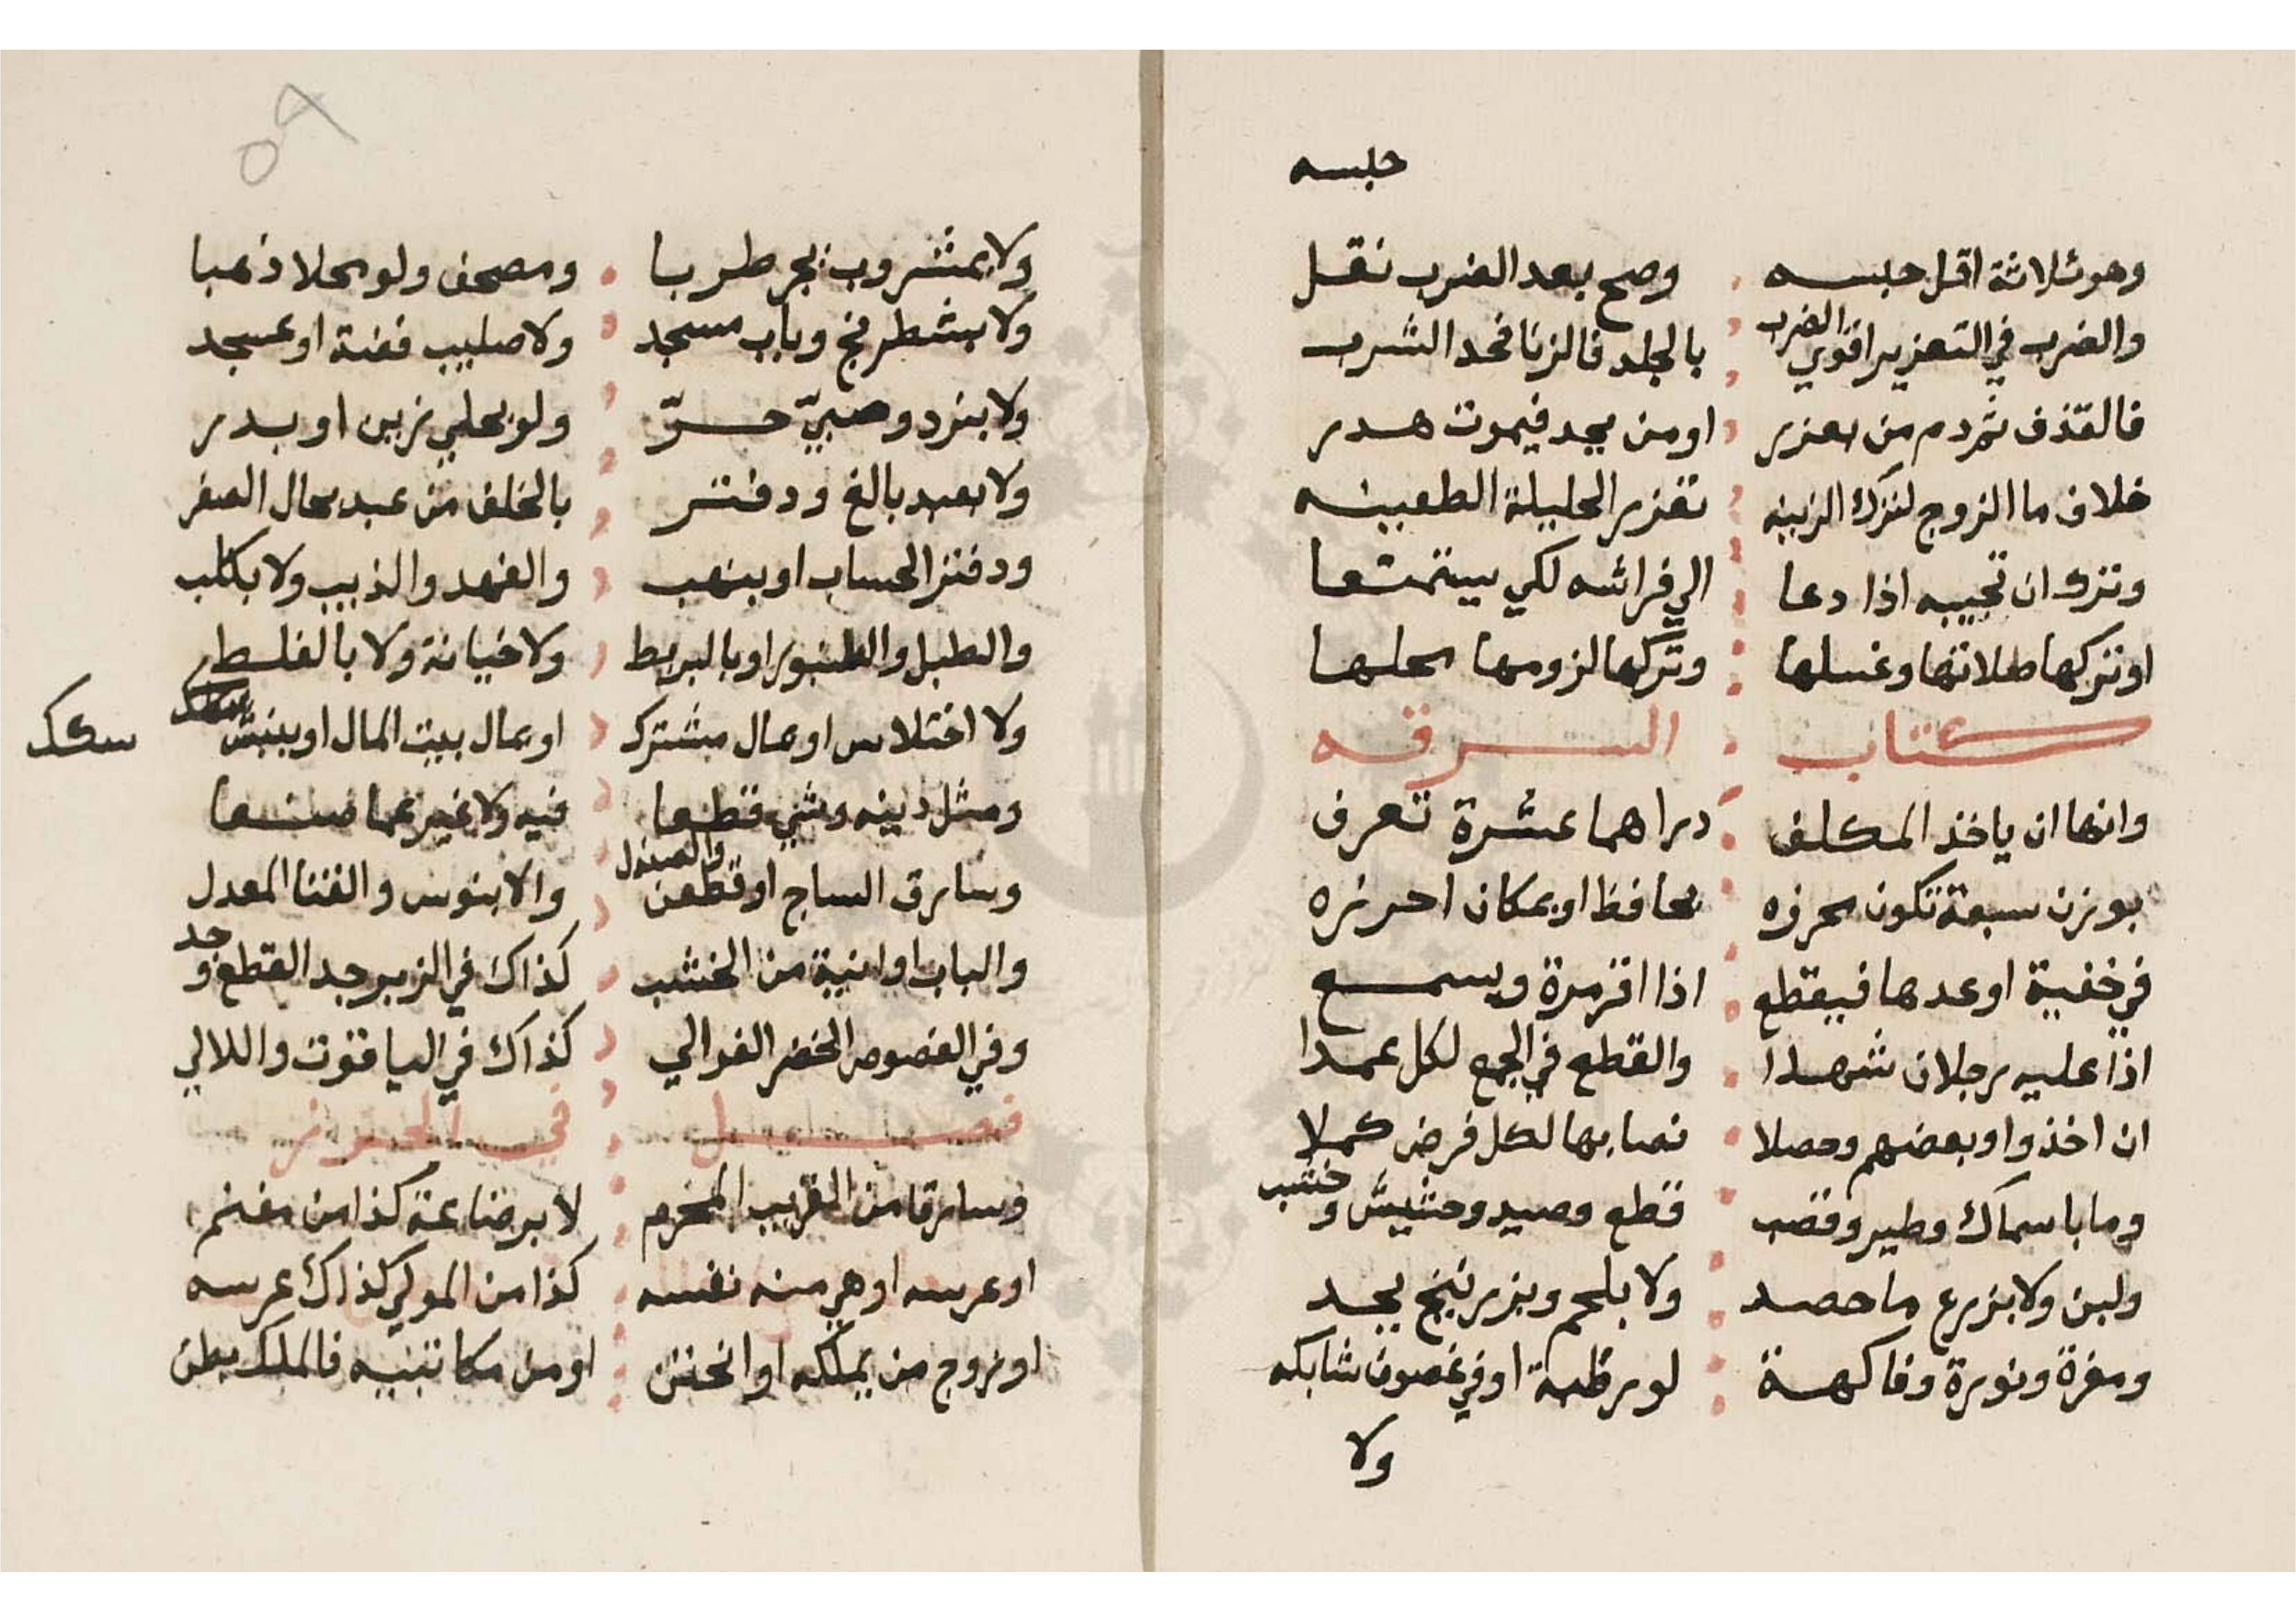 حبسه
وهو ثلاثة اقل حبسه وصح بعد الضرب نقل
والضرب في التعزير اقوي الضرب بالجلد فالزنا فحد الشرب
فالقذف ثم دم من يعزر او من يحد فيموت هدر
خلاف ما الزوج لترك الزينه تعزير الحليلة الظعينه
وترك ان تجيبه اذا دعا الي فراشه لكي يستمتعا
او تركها صلاتها وغسلها وتركها لزومها محلها
كتاب السرقه
وانها ان ياخذ المكلف دراهما عشرة تعرف
بوزن سبعة تكون محرزه بحافظ او بمكان احرزه
في خفية او عدها فيقطع اذا اقر مرة ويسمع
اذا عليه رجلان شهدا والقطع في الجمع لكل عمدا
ان اخذوا وبعضهم وحصلا نصابها لكل فرض كملا
وما باسماك وطير وقصب قطع وصيد وحشيش وخشب
ولبن ولا بزرع ما حصد ولا بلحم وبزرنيخ يجد
ومغرة ونورة وفاكهة لو رطبة او في غصون شابكه
ولا
٥٩
ولا بمشروب يجر طربا ومصحف ولو محلا ذهبا
ولا بشطرنج وباب مسجد ولا صليب فضة او عسجد
ولا بنرد وصبيّ حرّ ولو بحلي زين او بدر
ولا بعبد بالغ ودفتر بالخلف من عبد بحال الصغر
ودفتر الحساب او بنهب والفهد والذيب ولا بكلب
والطبل والطنبور او بالبربط ولا خيانة ولا بالغلط
ولا اختلاس او بمال مشترك او بمال بيت المال او بنبش
سكك
ومثل دينه وشيء قطعا فيه ولا غير عما صنعا
وسارق الساج او قطعن والصندل والابنوس والقنا المعدل
والباب او انية من الخشب كذاك في الزبرجد القطع وجد
وفي الفصوص الخضر الغوالي كذاك في الياقوت واللالي
فصل في الحرز
وسارقا من القريب المحرم لا برضاعة كذا من مغنم
او عرسه او هي منه نفسه كذا من المولي كذاك عرسه
او زوج من يملكه او الختن او من مكاتبيه فالملك بطن